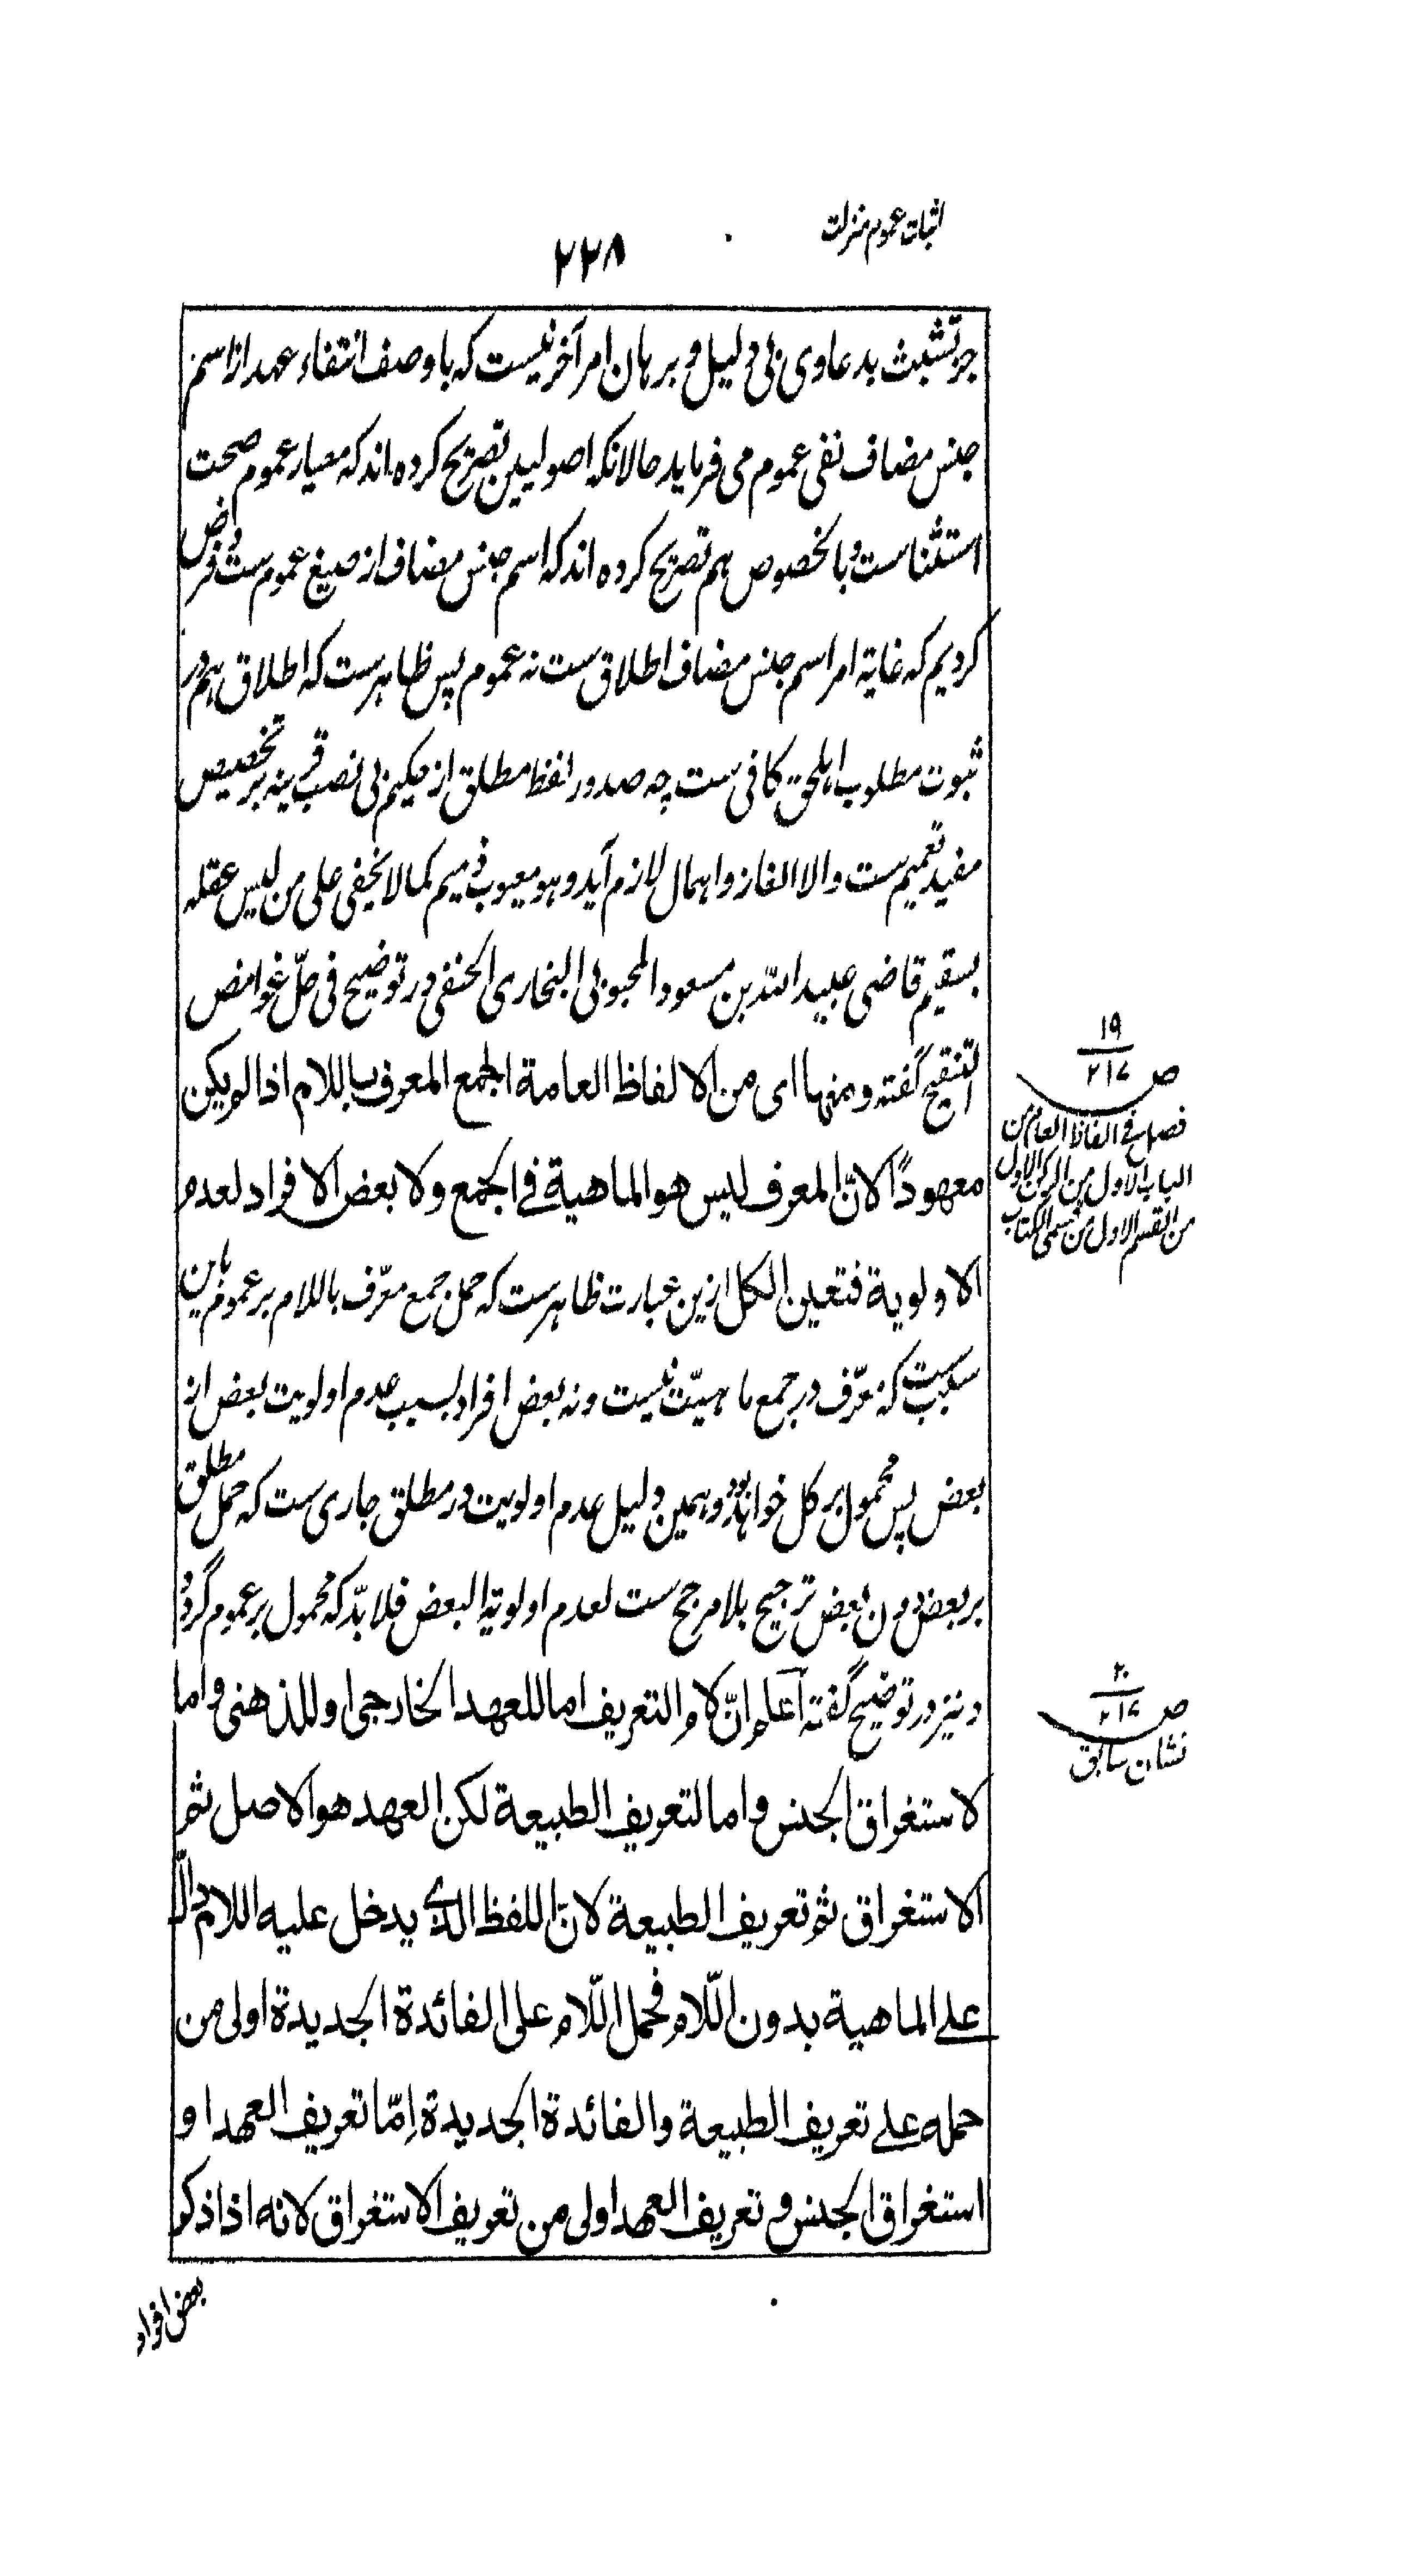 اثبات عموم منزلت
۲۲۸
جز تشبث بدعاوی بی دلیل و برهان امر آخر نیست که با وصف انتفاء عهد از اسم
جنس مضاف نفی عموم می فرماید حالانکه اصولیین تصریح کرده اند که معیار عموم صحت
استثناست و بالخصوص هم تصریح کرده اند که اسم جنس مضاف از صیغ عموم ست و فرض
کردیم که غایة امر اسم جنس مضاف اطلاق ست نه عموم پس ظاهرست که اطلاق هم در
ثبوت مطلوب اهلحق کافی ست چه صدور لفظ مطلق از حکیم بی نصب قرینه بر تخصیص
مفید تعمیم ست والا الغاز و اهمال لازم آید و هو معیوب ذمیم کما لا یخفی علی من لیس عقله
بسقیم قاضی عبید الله بن مسعود المحبوبی البخاری الحنفی در توضیح فی حلّ غوامض
التنقیح گفته و منها ای من الالفاظ العامة الجمع المعرف باللام اذا لم یکن
معهوداً لانّ المعرف لیس هو الماهیة فی الجمع ولا بعض الافراد لعدم
الاولویة فتعین الکل ازین عبارت ظاهرست که حمل جمع معرّف باللام بر عموم باین
سبب ست که معرّف در جمع ماهیّت نیست و نه بعض افراد بسبب عدم اولویت بعض از
بعض پس محمول بر کل خواهد بود و همین دلیل عدم اولویت در مطلق جاری ست که حمل مطلق
بر بعض دون بعض ترجیح بلا مرجح ست لعدم اولویة البعض فلابدّ که محمول بر عموم گردد
و نیز در توضیح گفته اعلم انّ لام التعریف اما للعهد الخارجی او للذهنی و اما
لاستغراق الجنس و اما لتعریف الطبیعة لکن العهد هو الاصل ثم
الاستغراق ثم تعریف الطبیعة لانّ اللفظ الذی یدخل علیه اللام دالّ
علی الماهیة بدون اللّام فحمل اللّام علی الفائدة الجدیدة اولی من
حمله علی تعریف الطبیعة والفائدة الجدیدة اِمّا تعریف العهد او
استغراق الجنس و تعریف العهد اولی من تعریف الاستغراق لانه اذا ذکر
بعض افراد
۱۹
ص ۲۱۷
فصل فی الفاظ العام من
الباب الاول من الرکن الاول
من القسم الاول من قسمی الکتاب
۲۰
ص ۲۱۷
نشان سابق